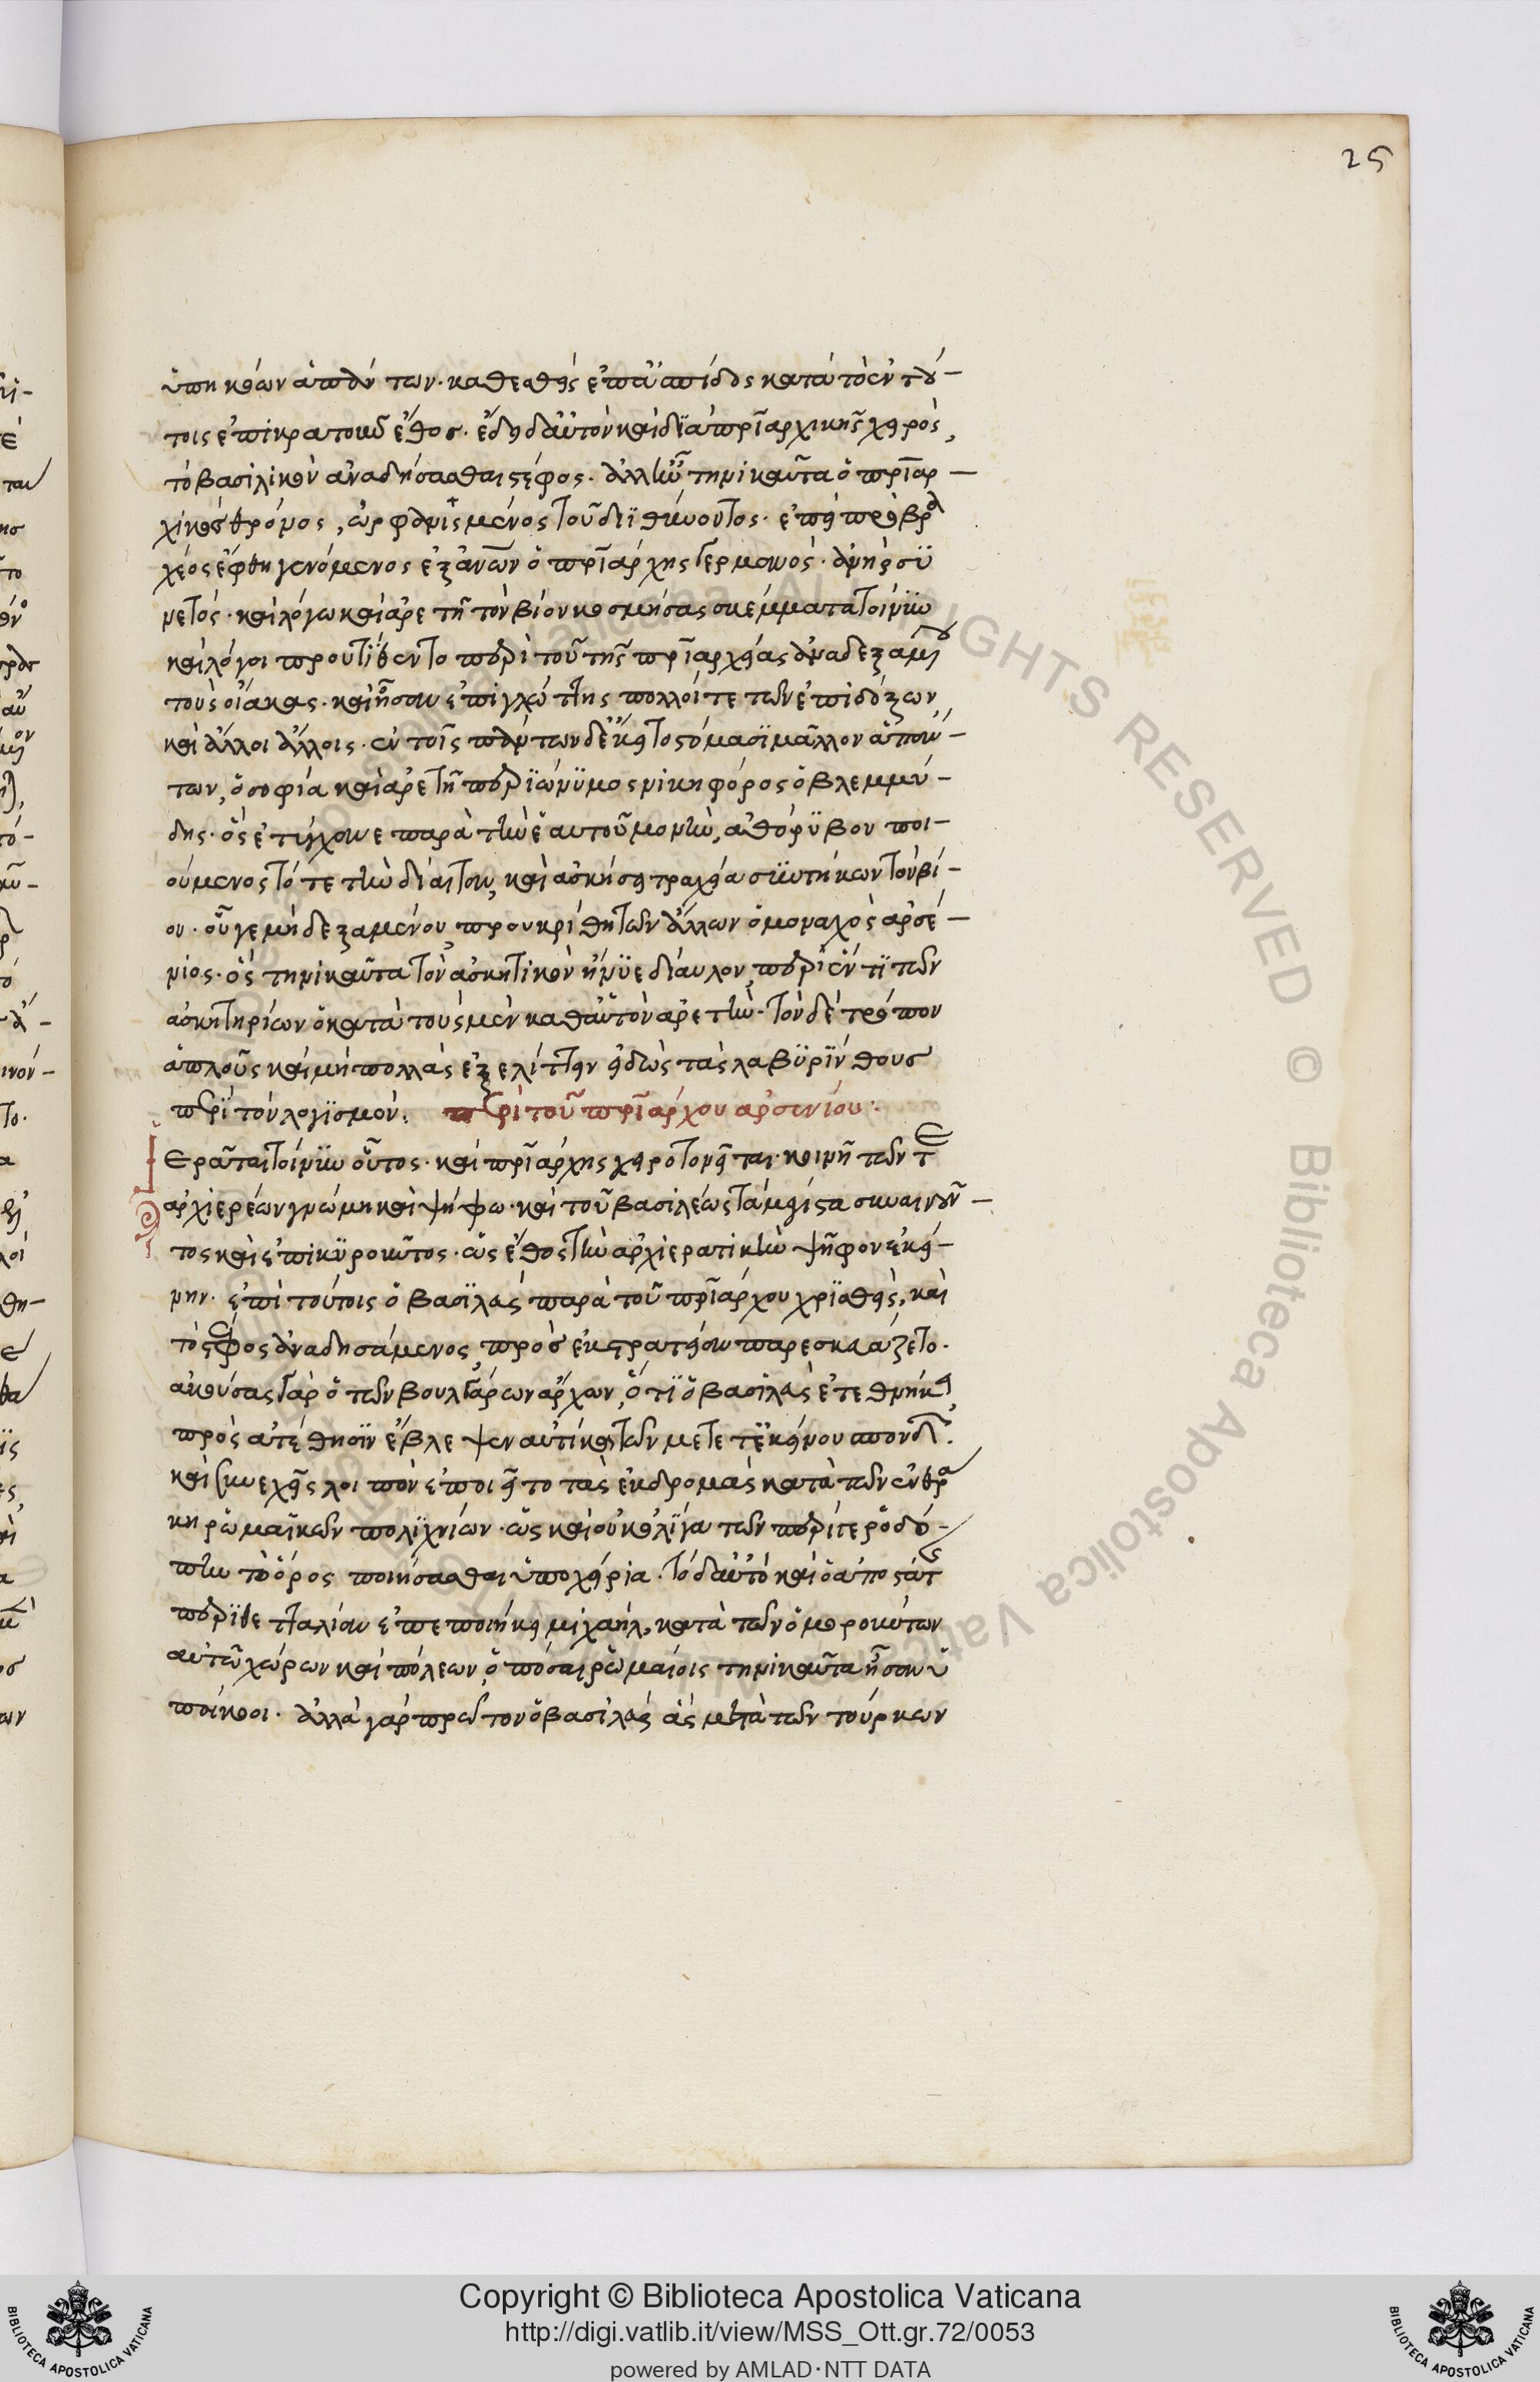 25
ὑπηκόων ἁπάντων· καθεσθεὶς ἐπ᾽ ἀσπίδος κατὰ τὸ ἐν τού-
τοις ἐπικρατοῦν ἔθος. ἔδει δ᾽ αὐτὸν καὶ διὰ πριαρχικῆς χειρὸς,
τὸ βασιλικὸν ἀναδήσασθαι στέφος. ἀλλ᾽ ἦν τηνικαῦτα ὁ πριαρ-
χικὸς θρόνος, ὠρφανισμένος τοῦ διϊθύνοντος. ἐπεὶ πρὸ βρα
χέος ἔφθη γενόμενος ἐξ ἀνων ὁ πριάρχης γερμανός. ἀνὴρ συ
νετός. καὶ λόγω καὶ ἀρετῆ τὸν βίον κοσμήσας σκέμματα τοίνυν
καὶ λόγοι προυτίθεντο περὶ τοῦ τῆς πριαρχείας ἀναδεξαμένου
τοὺς οἴακας. καὶ ἦσαν ἐπὶ γλώττης πολλοί τε τῶν ἐπιδόξων,
καὶ ἄλλοι ἄλλοις. ἐν τοῖς πάντων δὲ ἔκειτο στόμασι μᾶλλον ἁπάν-
των, ὁ σοφία καὶ ἀρετῆ περιώνυμος νικηφόρος ὁ βλεμμύ-
δης. ὃς ἐτύγχανε παρὰ τὴν ἑαυτοῦ μονὴν, ἀθόρυβον ποι-
ούμενος τότε τὴν δίαιταν, καὶ ἀσκήσει τραχεία συντήκων τὸν βί-
ον. οὗ γε μὴ δεξαμένου, προυκρίθη τῶν ἄλλων ὁ μοναχὸς ἀρσέ-
νιος. ὃς τηνικαῦτα τὸν ἀσκητικὸν ἤνυε δίαυλον, περὶ ἕν τι τῶν
ἀσκητηρίων ὁ κατὰ τοὺς μὲν καθ᾽ αὑτὸν ἀρετὴν. τὸν δὲ τρόπον
ἁπλοῦς καὶ μὴ πολλὰς ἐξελίττειν εἰδὼς τὰς λαβυρίνθους
περὶ τὸν λογισμόν. περὶ τοῦ πριάρχου ἀρσενίου·
Ἱερᾶται τοίνυν οὗτος. καὶ πριάρχης χειροτονεῖται. κοινῆ τῶν τε
ἀρχιερέων γνώμη καὶ ψήφω. καὶ τοῦ βασιλέως τὰ μέγιστα συναινοῦν-
τος καὶ ἐπικυροῦντος. ὡς ἔθος τὴν ἀρχιερατικὴν ψῆφον ἐκεί-
νην. ἐπὶ τούτοις ὁ βασιλεὺς παρὰ τοῦ πριάρχου χρισθεὶς, καὶ
τὸ στέφος ἀναδησάμενος, πρὸς ἐκστρατείαν παρεσκευάζετο.
ἀκούσας γὰρ ὁ τῶν βουλγάρων ἄρχων, ὅτι ὁ βασιλεὺς ἐτεθνήκει,
πρὸς ἀπέχθησιν ἔβλεψεν αὐτίκα τῶν μετ᾽ ἐκείνου σπονδῶν.
καὶ συνεχεῖς λοιπὸν ἐποιεῖτο τὰς ἐκδρομὰς κατὰ τῶν ἐν θρά
κη ῥωμαϊκῶν πολιχνίων. ὡς καὶ οὐκ ὀλίγα τῶν περί τε ῥοδό-
πην τὸ ὄρος ποιήσασθαι ὑποχείρια. τὸ δ᾽ αὐτὸ καὶ ὁ ἀποστάτης
περὶ θετταλίαν ἐπεποιήκει μιχαήλ, κατὰ τῶν ὁμορούντων
αὐτῶ χώρων καὶ πόλεων, ὁπόσαι ῥωμαίοις τηνικαῦτα ἦσαν ὑ
πήκοοι. ἀλλὰ γὰρ πρῶτον ὁ βασιλεὺς ἃς μετὰ τῶν τούρκων
Copyright © Biblioteca Apostolica Vaticana
http://digi.vatlib.it/view/MSS_Ott.gr.72/0053
powered by AMLAD·NTT DATA